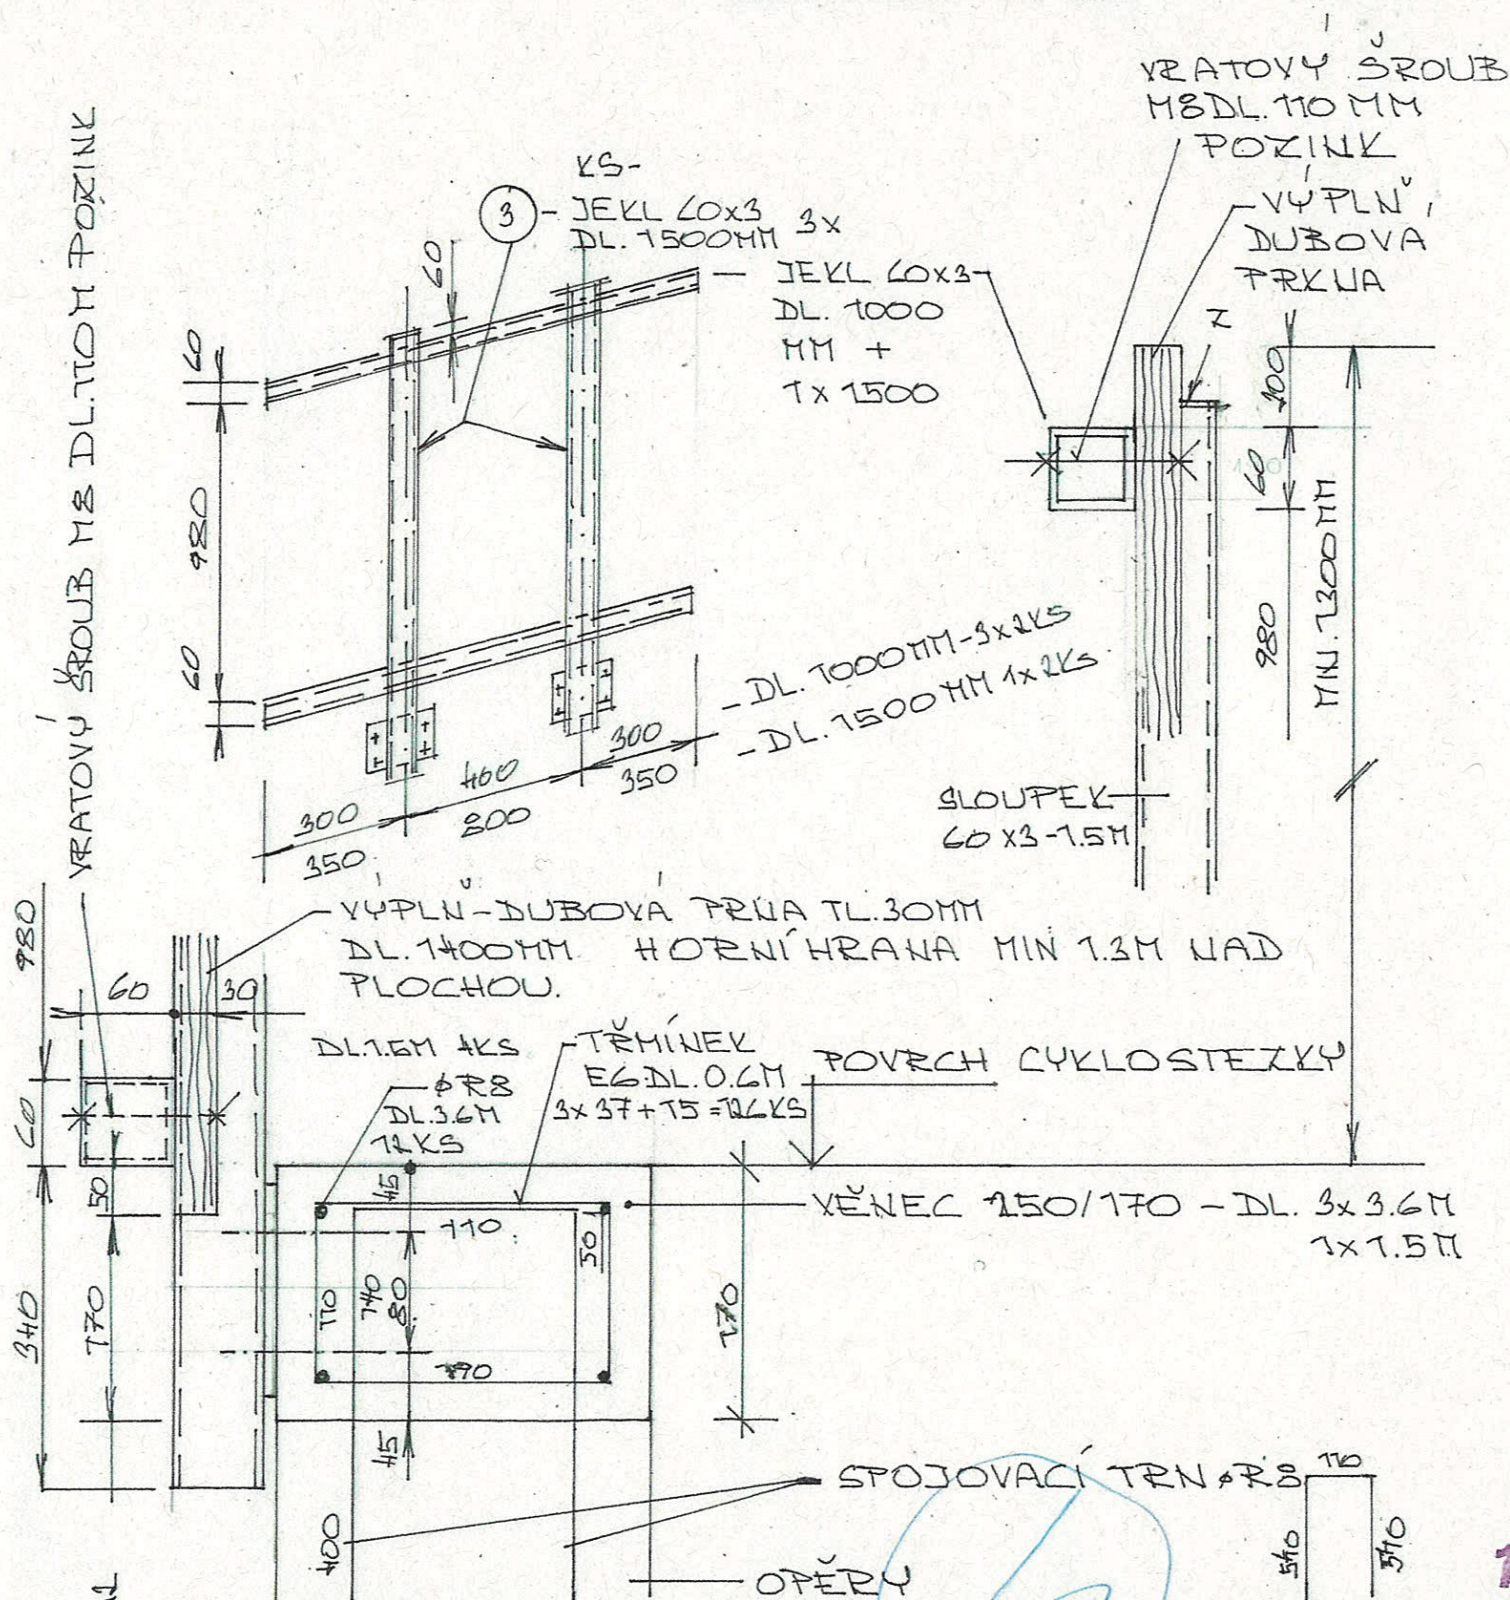 VRATOVÝ ŠROUB
M8 DL. 110 MM
POZINK
VÝPLŇ,
DUBOVÁ
PRKNA
Z
VRATOVÝ ŠROUB M8 DL. 110 M POZINK
KS-
3
- JEKL 60x3
DL. 1500MM 3x
JEKL 60x3
DL. 1000
MM +
1x 1500
60
60
980
60
300
350
400
800
300
350
- DL. 1000MM - 3x2KS
- DL. 1500MM 1x2KS
100
60
980
MIN. 1300MM
SLOUPEK
60 x3 - 1.5M
VÝPLŇ - DUBOVÁ PRNA TL. 30MM
DL. 1400MM HORNÍ HRANA MIN 1.3M NAD
PLOCHOU.
980
60
30
60
50
170
340
DL. 1.5M 4KS
ØR8
DL. 3.6M
12KS
TŘMÍNEK
E6 DL. 0.6M
3x 37 + 15 = 126KS
POVRCH CYKLOSTEZKY
VĚNEC 250/170 - DL. 3x 3.6M
1x 1.5M
45
110
50
110
140
80
190
45
170
400
SPOJOVACÍ TRN ØR8
110
540
540
OPĚRY